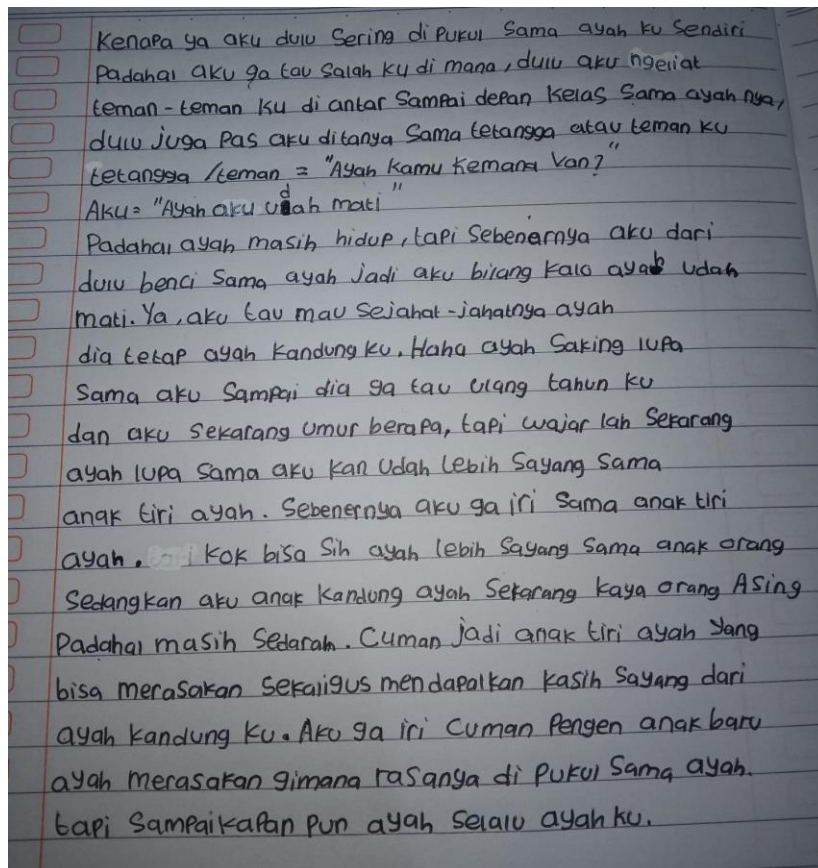 Kenapa ya aku dulu sering di pukul sama ayah ku sendiri
Padahal aku ga tau salah ku di mana, dulu aku ngeliat
teman-teman ku di antar sampai depan kelas sama ayah nya,
dulu juga pas aku ditanya sama tetangga atau teman ku
tetangga /teman = "Ayah kamu kemana Van?"
Aku= "Ayah aku udah mati"
Padahal ayah masih hidup, tapi sebenarnya aku dari
dulu benci sama ayah jadi aku bilang kalo ayah udah
mati. Ya, aku tau mau sejahat-jahatnya ayah
dia tetap ayah kandung ku. Haha ayah saking lupa
sama aku sampai dia ga tau ulang tahun ku
dan aku sekarang umur berapa, tapi wajar lah sekarang
ayah lupa sama aku kan udah lebih sayang sama
anak tiri ayah. Sebenernya aku ga iri sama anak tiri
ayah. kok bisa sih ayah lebih sayang sama anak orang
sedangkan aku anak kandung ayah sekarang kaya orang Asing
Padahal masih sedarah. Cuman jadi anak tiri ayah yang
bisa merasakan sekaligus mendapatkan kasih sayang dari
ayah kandung ku. Aku ga iri cuman pengen anak baru
ayah merasakan gimana rasanya di pukul sama ayah.
tapi sampaikapan pun ayah selalu ayah ku.